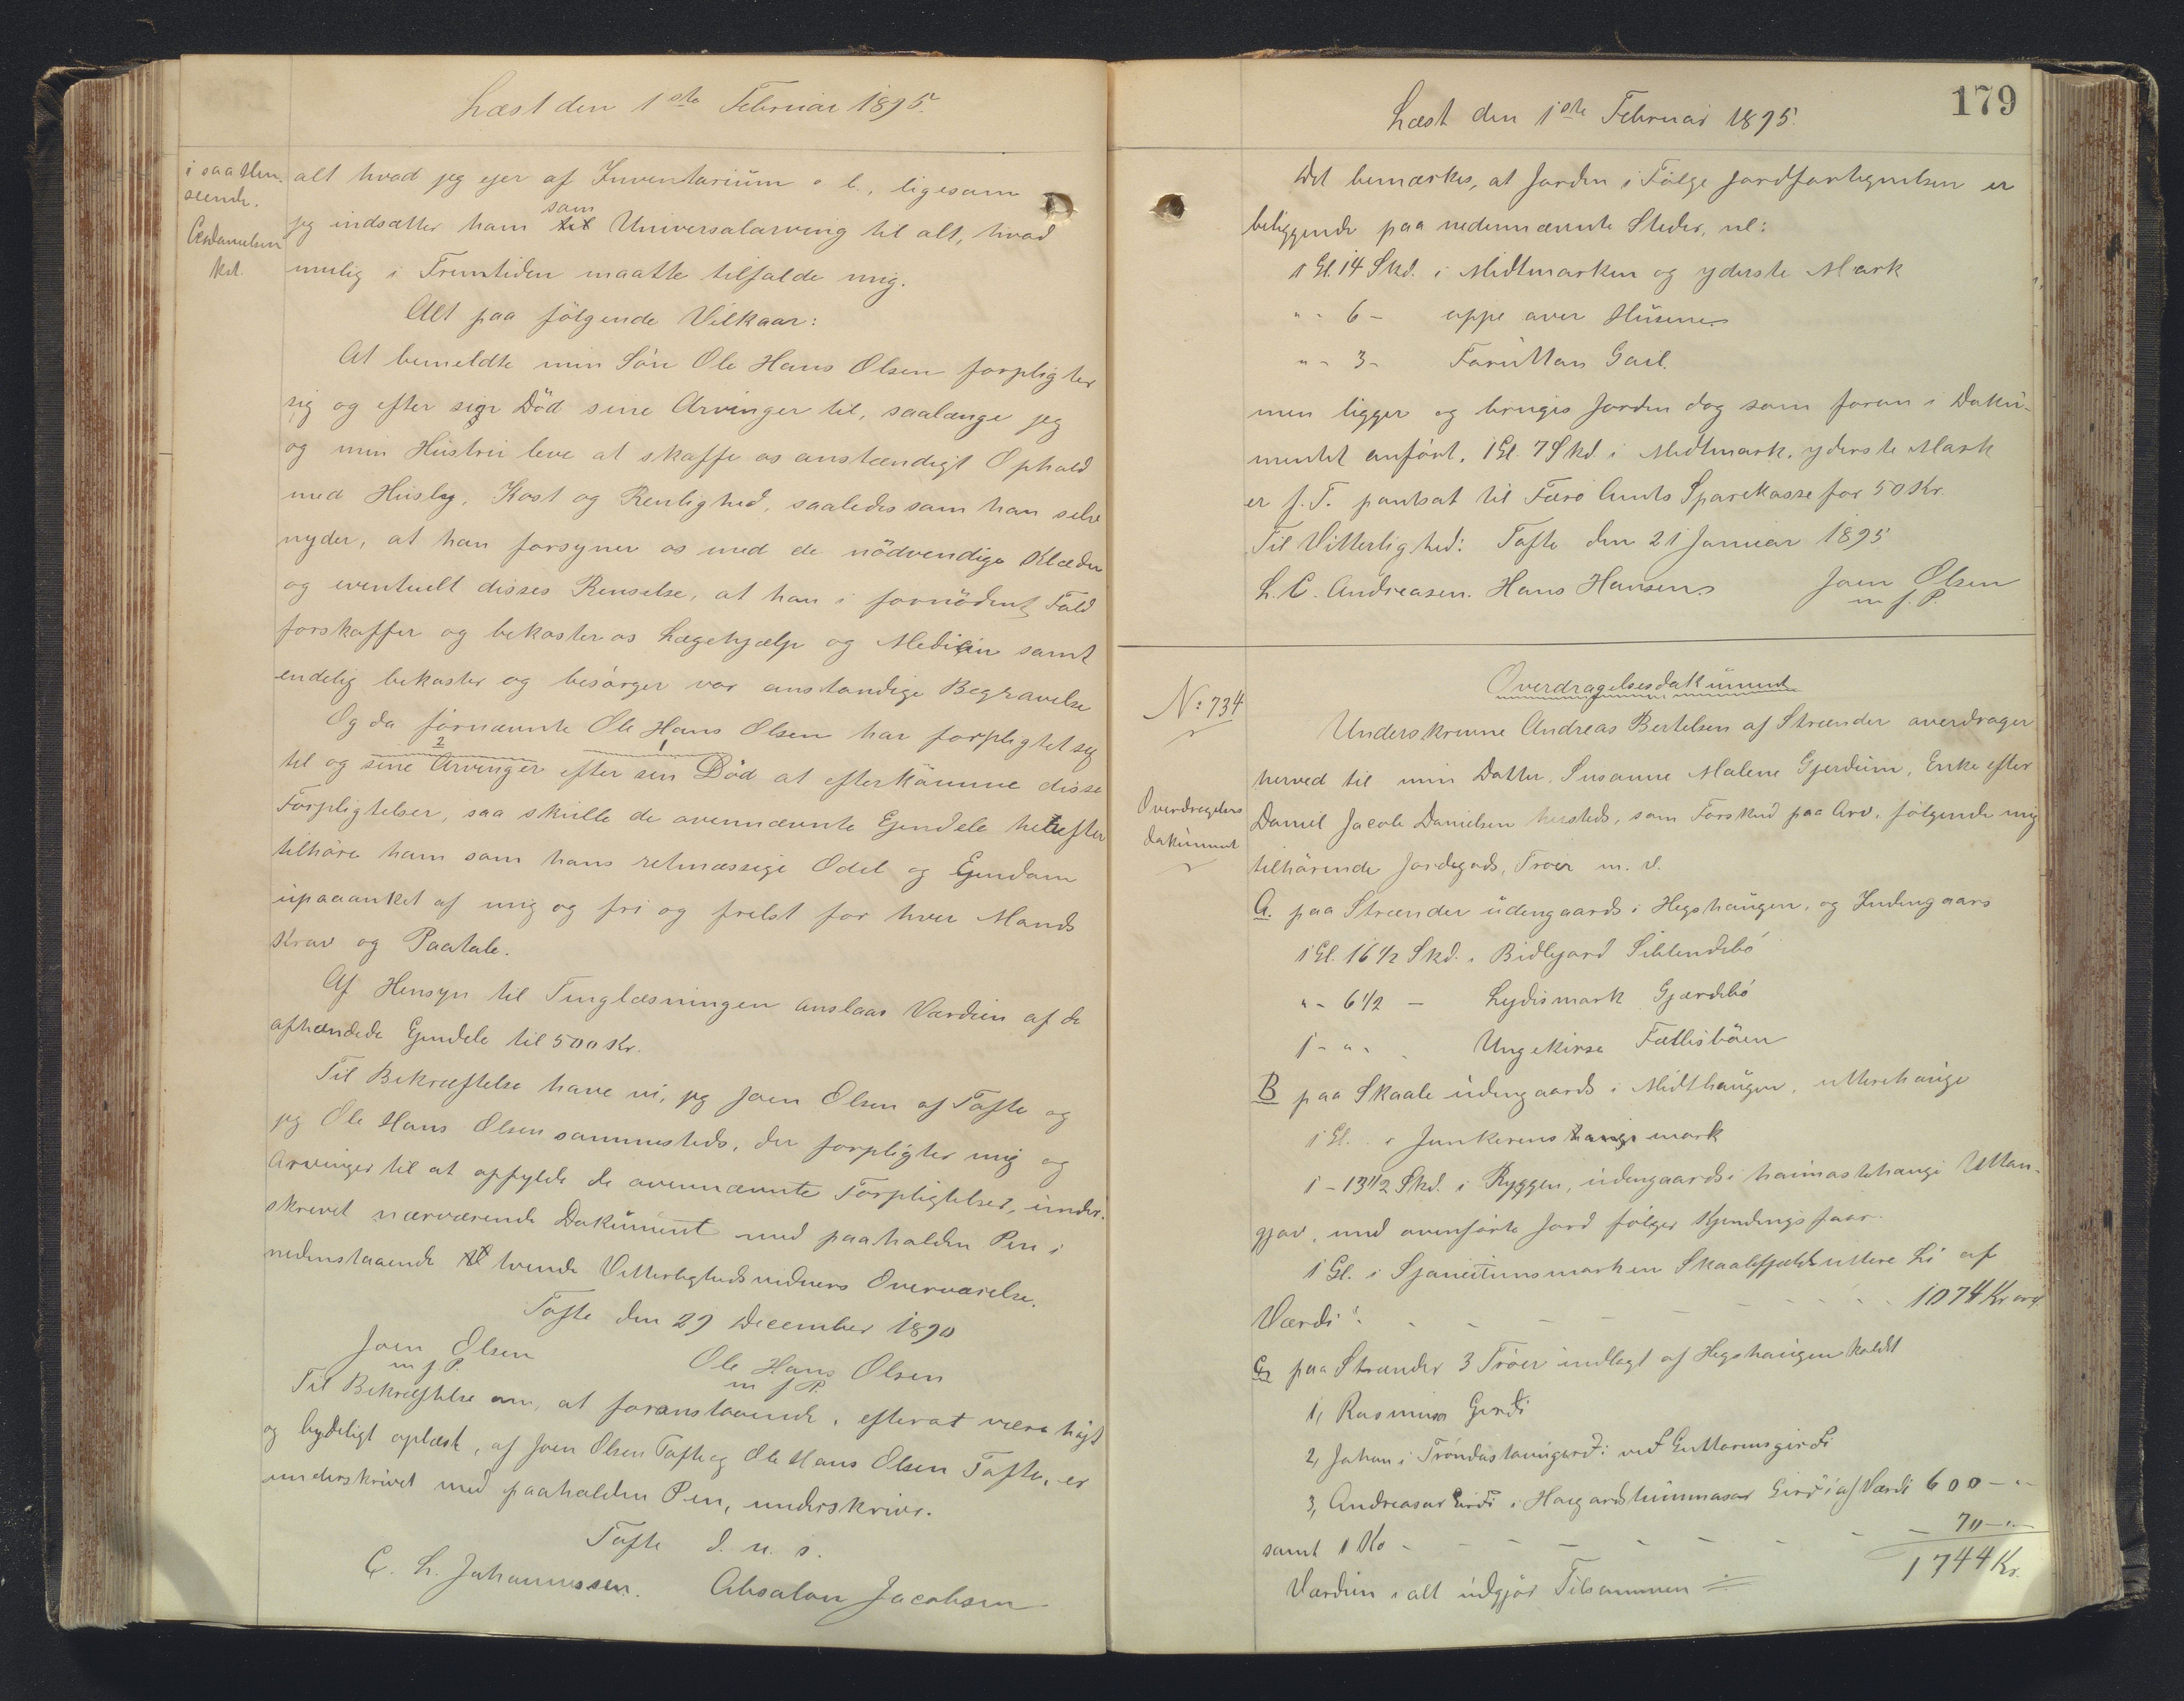 Læst den 1ste Februar 1895.
i saa Hen-
seende.
alt hvad jeg ejer af Inventarium o. l., ligesom
jeg indsætter ham som til Universalarving til alt, hvad
mulig i Fremtiden maatte tilfalde mig.
Alt paa følgende Vilkaar:
At bemeldte min Sön Ole Hans Olsen forpligter
sig og efter sin Död sine Arvinger til, saalænge jeg
og min Hustru leve at skaffe os anstændigt Ophold
med Husly, Kost og Renlighed, saaledes som han selv
nyder, at han forsyner os med de nödvendige Klæder
og eventuelt disses Renselse, at han i fornödent Fald
forskaffer og bekoster os Lægehjælp og Medicin samt
endelig bekoster og besörger vor anstændige Begravelse
Og da fornævnte Ole Hans Olsen har forpligtet sig
til og sine Arvinger efter sin Död at efterkomme disse
Forpligtelser, saa skulle de ovennævnte Ejendele herefter
tilhöre ham som hans retmæssige Odel og Ejendom
upaaanket af mig og fri og frelst for hver Mands
Krav og Paatale.
Af Hensyn til Tinglæsningen anslaas Værdien af de
afhændede Ejendele til 500 Kr.
Til Bekræftelse have vi, jeg Joen Olsen af Tofte og
jeg Ole Hans Olsen sammesteds, der forpligter mig og
Arvinger til at opfylde de ovennævnte Forpligtelser, under-
skrevet nærværende Dokument med paaholden Pen i
nedenstaaende tvende Vitterlighedsvidners Overværelse.
Tofte den 29 December 1890
Joen Olsen Ole Hans Olsen
m f P. m f P.
Til Bekræftelse om, at foranstaaende, efterat være höjt
og tydeligt oplæst, af Joen Olsen Tofte og Ole Hans Olsen Tofte, er
underskrivet med paaholden Pen, underskrive.
Tofte d. u. s.
C. L. Johannessen. Absalon Jacobsen
179
Læst den 1ste Februar 1895.
Det bemærkes, at Jorden i Fölge Jordfortegnelsen er
beliggende paa nedennævnte Steder, nl:
1 Gl. 14 Skd. i Midtmarken og yderste Mark
" - 6 - oppe over Husene
" - 3 - Foruttan Gail.
men ligger og bruges Jorden dog som foran i Doku-
mentet anfört. 1 Gl. 7 Skd. i Midtmark, yderste Mark
er f. T. pantsat til Færö Amts Sparekasse for 50 Kr.
Til Vitterlighed: Tofte den 21 Januar 1895
L. C. Andreasen. Hans Hansen Joen Olsen
m f. P.
No 734
Overdragelses
dokument
Overdragelsesdokument
Underskrevne Andreas Bertelsen af Strænder overdrager
herved til min Datter Susanne Malene Gjerdum, Enke efter
Daniel Jacob Danielsen hersteds, som Forskud paa Arv, fölgende mig
tilhörende Jordegods, Tröer m. v.
A. paa Strænder udengaards i Hegshaugen, og Indengaars
1 Gl. 16 1/2 Skd. i Bidlegard
" - 6 1/2 - Lydismark Gjærdebö
1 - " - Ungekirse Fællisböen
B paa Skaale udengaards i Midthaugen, utterehauge
1 Gl. i Junkerens mark
1 - 13 1/2 Skd. i Ryggen, udengaards i haimastehauge Uttan-
gjov, med ovenförte Jord fölger Kjendingsfaar.
1 Gl. i Skaalefjelds uttere Li af
Værdi: - - - - - 1074 Kr
C, paa Strænder 3 Tröer indlagt af Hegshaugen kaldt
1, Rasmusa Gerdi
2, Johan i Tröndastovugerdi ved Guttormsgirdi
3, Andreasar Girdi i Girdi af Værdi 600 - "
samt 1 Ko - - - - - - 70 - "
Værdien i alt udgjör Tilsammen 1744 Kr.